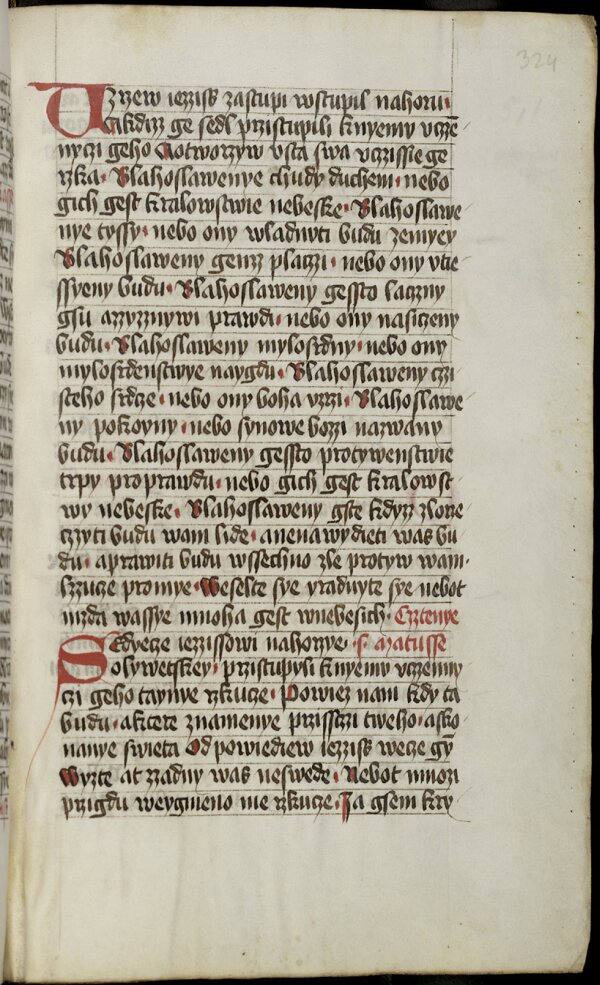 324
Uzrzew iezziss zastupi wstupil nahoru
Gakdizz ge sedl przistupili knyemu vczē
nyczi geho Aotworzyw vsta swa vczissiege
rzka Blahoslawenye chudy duchem nebo
gich gest kralowstwie nebeske Blahoslawe
nye tyssy nebo ony wladnuti budu zemyey
Blahoslaweny genz placzi nebo ony vtie
ssyeny budu Blahoslaweny gessto laczny
gsu azzyznywi prawdi nebo ony nasiczeny
budu Blahoslaweny mylosrdny nebo ony
mylosrdenstwye naygdu Blahoslaweny czi
steho srdcze nebo ony boha vzrzi Blahoslawe
ny pokoyny nebo synowe bozi nazwany
budu Blahoslaweny gessto protywenstwie
trpy proprawdu nebo gich gest kralowst
wy nebeske Blahoslaweny gste kdyz zlorze
czyti budu wam lide anenawydieti was bu
du aprawiti budu wssechno zle protyw wam
lzzucze promye Weselte sye yraduyte sye nebot
mzda wassye mnoha gest wnebesich Cztenye
Sedyecze iezzissowi nahorzye s. Matusse
olywetskey przistupyli knyemu vczenny
czi geho taynye rzkucze Powiez nam kdy ta
budu aktere znamenye przissczi tweho asko
nanye swieta Odpowiediew iezziss wecze gȳ
Wyzte at zzadny was neswede Nebot mnozi
przigdu weygmeno me rzkucze Ja gsem kry